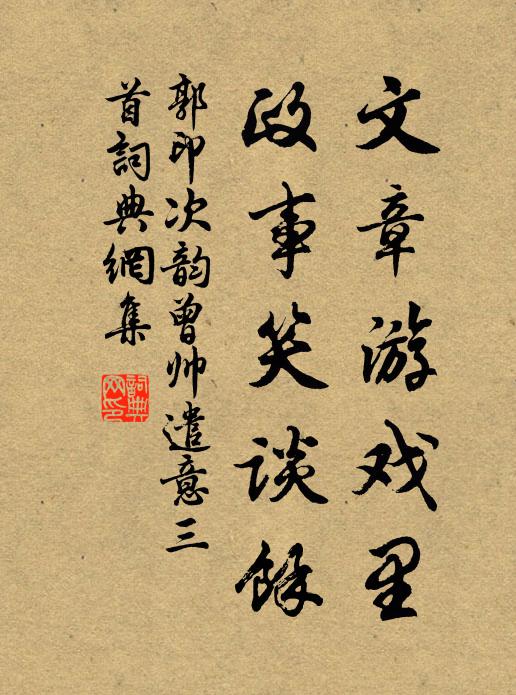 文章游戏里
政事笑谈馀
郭印次韵曾帅遣意三
首词典網集
詞典網印